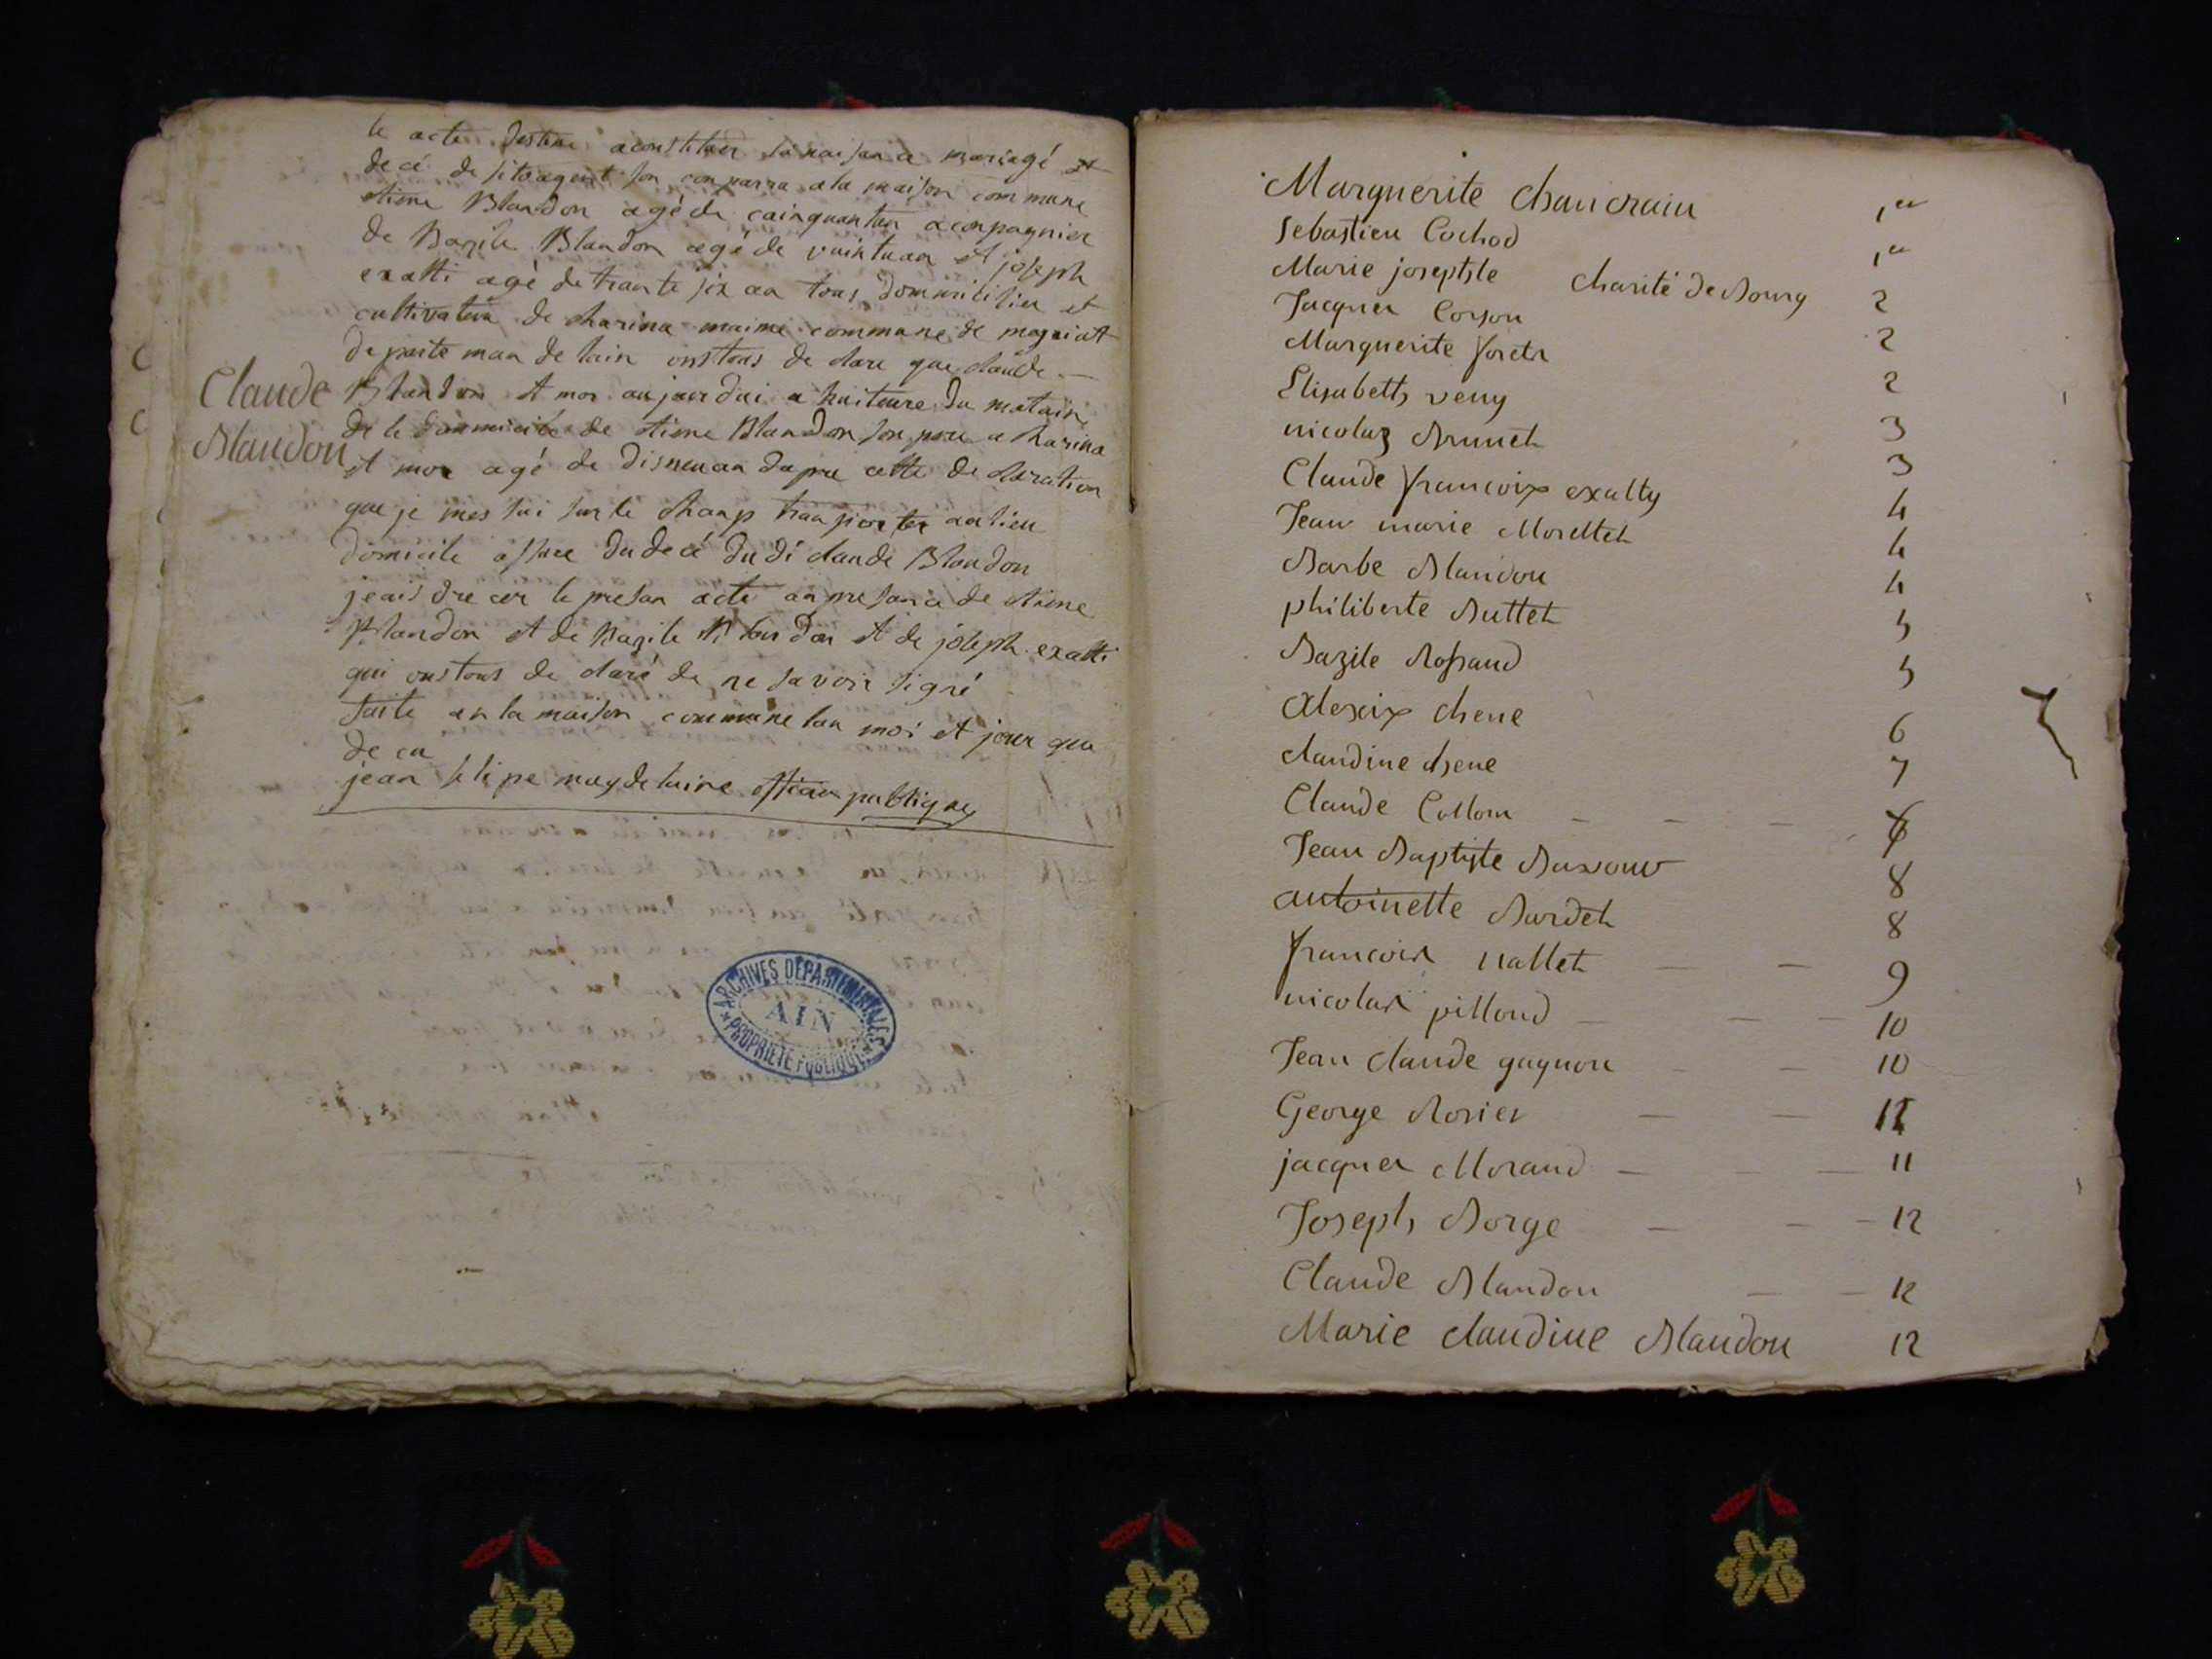 le acte destine aconstater lainaisance mariagé et
decé de sitoagent son conparra ala maison commune
etiene Blandon agé de cainquantan aconpagnier
de Bazile Blandon agé de vaintuan et joseph
exatti agé de trante six an tous dommicilier et
cultivateur de charina maime commune de
departe man de lain onstous de clare que claude
Claude
Blandon
Blandon et mor aujourdui a huiteure du matain
de le dommicile de etiene Blandon son pere a charina
et mor agé de disneuan dapre cette de claration
que je mes sui sur le chanp tranporter aulieu
domicile assure du decé dudi claude Blandon
jeais drecer le presan acte anpresance de etiene
Blandon et de Bazile Blandon et de joseph exatti
qui onstous de claré de ne savoir signé
faite en la maison commune lan moi et jour que
de cu
jean felipe magdelaine officier publique
ARCHIVES DÉPARTEMENTALES
AIN
PROPRIÉTÉ PUBLIQUE
Marguerite Chancrain 1er
Sebastien Cochod 1er
Marie josephte Charité de Bourg 2
Jacques Corson 2
Marguerite foreth 2
Elisabeth veny 3
nicolaz Bruneth 3
Claude francoix exalty 4
Jean marie Moretteth 4
Barbe Blandon 4
philiberte Butteth 5
Bazile Rossand 5
Alexix chene 6
claudine chene 7
Claude Collom
Jean Baptiste Buxonw 8
antoinette Bardeth 8
francois nalleth 9
nicolas pilloud 10
Jean claude gagnon 10
George Rosier 11
jacques Morand 11
Joseph Borge 12
Claude Blandon 12
Marie claudine Blandon 12